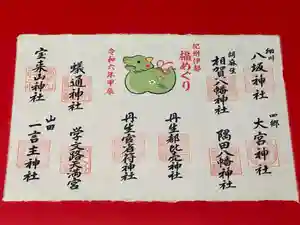 細川
八坂神社
胡麻生
相賀八幡神社
紀州伊勢
福めぐり
令和六年甲辰
蟻通神社
宝来山神社
四郷
大宮神社
隅田八幡神社
丹生都比売神社
丹生官省符神社
学文路天満宮
山田
一言主神社